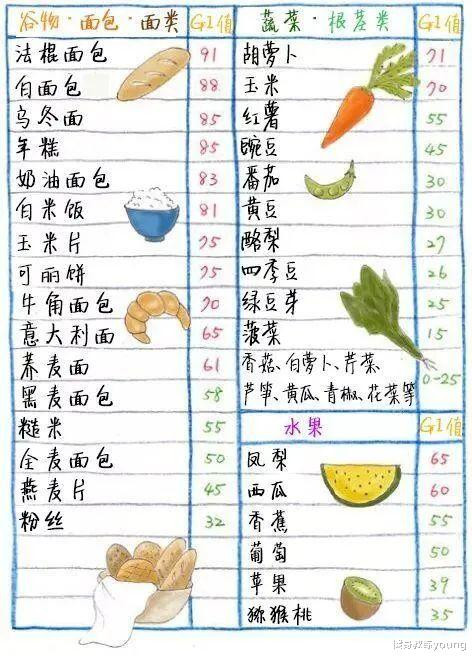 谷物·面包·面类 GI值
法棍面包 91
白面包 88
乌冬面 85
年糕 85
奶油面包 83
白米饭 81
玉米片 75
可丽饼 75
牛角面包 70
意大利面 65
荞麦面 61
黑麦面包 58
糙米 55
全麦面包 50
燕麦片 45
粉丝 32
蔬菜·根茎类 GI值
胡萝卜 71
玉米 70
红薯 55
豌豆 45
番茄 30
黄豆 30
酪梨 27
四季豆 26
绿豆芽 25
菠菜 15
香菇、白萝卜、芹菜、
芦笋、黄瓜、青椒、花菜等 0-25
水果 GI值
凤梨 65
西瓜 60
香蕉 55
葡萄 50
苹果 39
猕猴桃 35
young